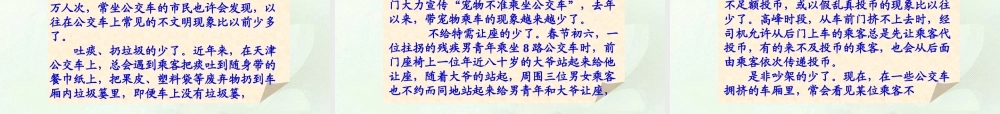 万人次，常坐公交车的市民也许会发现，以
往在公交车上常见的不文明现象比以前少多
了。
吐痰、扔垃圾的少了。近年来，在天津
公交车上，总会遇到乘客把痰吐到随身带的
餐巾纸上，把果皮、塑料袋等废弃物扔到车
厢内垃圾篓里，即便车上没有垃圾篓，
门大力宣传“宠物不准乘坐公交车”，去年
以来，带宠物乘车的现象越来越少了。
不给特需让座的少了。春节初六，一
位拄拐的残疾男青年乘坐8路公交车时，前
门座椅上一位年近八十岁的大爷站起来给他
让座，随着大爷的站起，周围三位男女乘客
也不约而同地站起来给男青年和大爷让座，
不足额投币，或以假乱真投币的现象比以往
少了。高峰时段，从车前门挤不上去时，经
司机允许从后门上车的乘客总是先让乘客代
投币，有的来不及投币的乘客，也会从后面
由乘客依次传递投币。
是非吵架的少了。现在，在一些公交车
拥挤的车厢里，常会看见某位乘客不